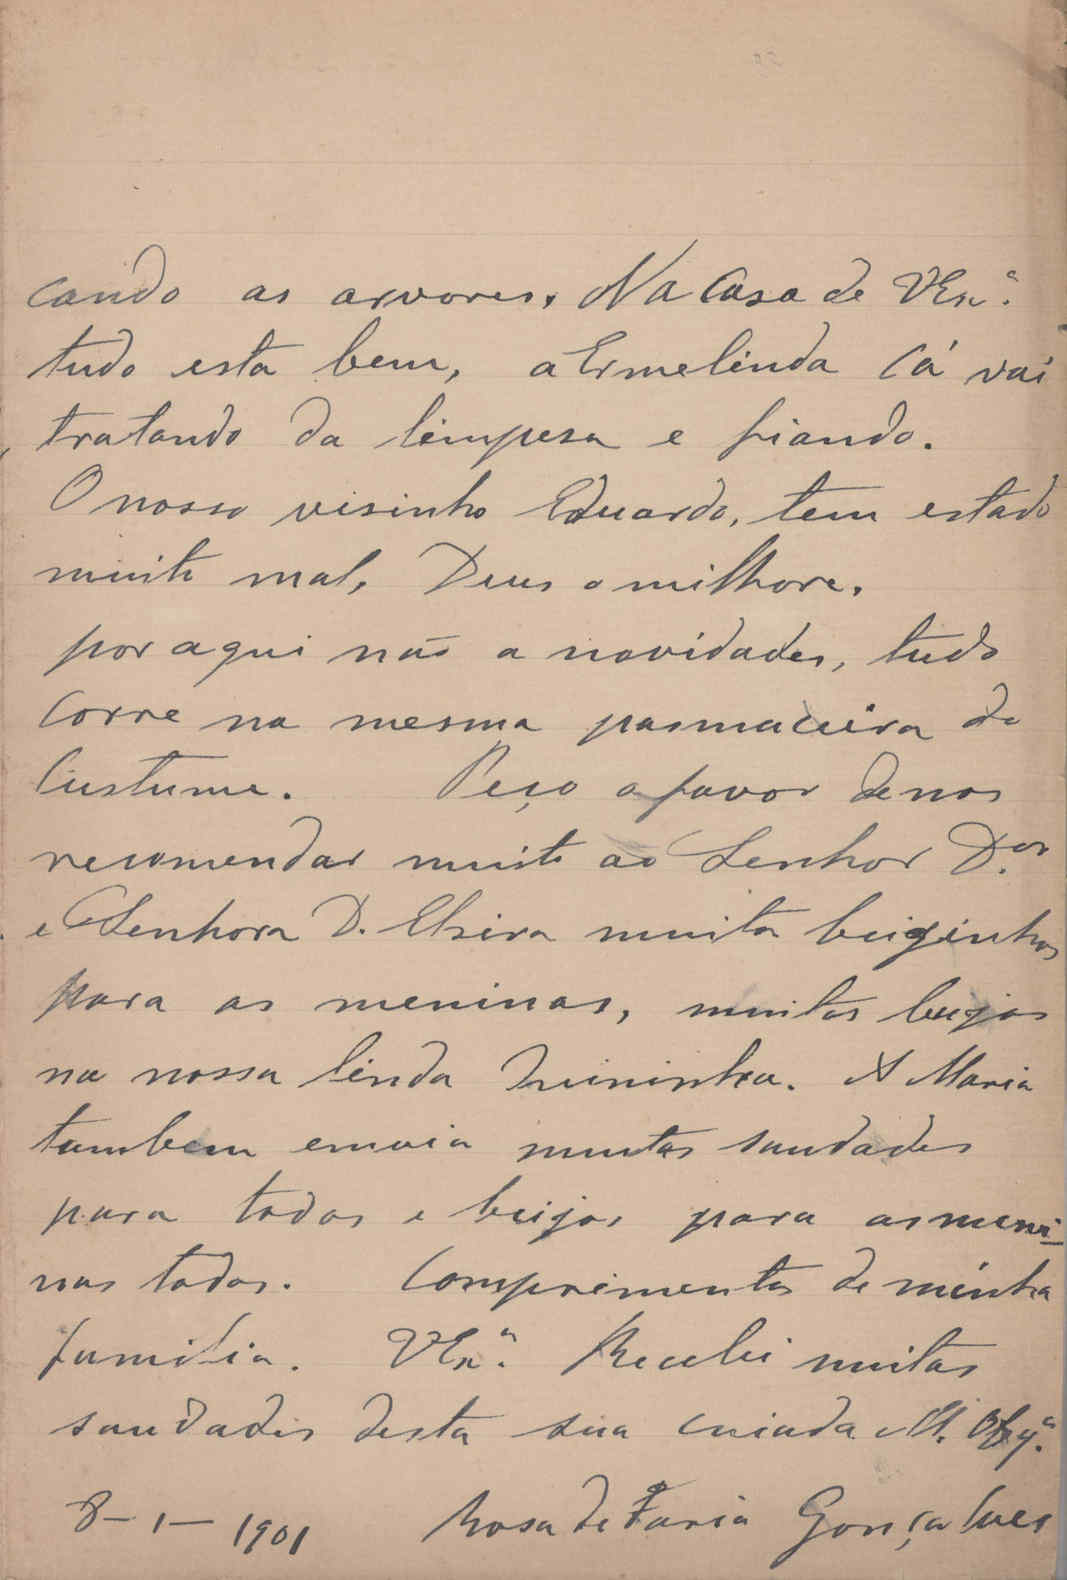 cando as arvores. Na Casa de VExª.
tudo esta bem, a Ermelinda cá vai
tratando da limpesa e fiando.
O nosso visinho Eduardo, tem estado
muito mal, Deus o milhore.
por aqui não a novidades, tudo
corre na mesma pasmaceira do
custume. Peço o favor de nos
recomendar muito ao Senhor D.or
e Senhora D. Elzira muita beiginhos
para as meninas, muitos beijos
na nossa linda . A Maria
tambem emvia muntas saudades
para todos e beijos para as meni-
nas todas. Comprimentos de minha
familia. VExª. Recebi muitas
saudades desta sua criada M. Obgª.
8-1-1901 Rosa de Faria Gonçalves